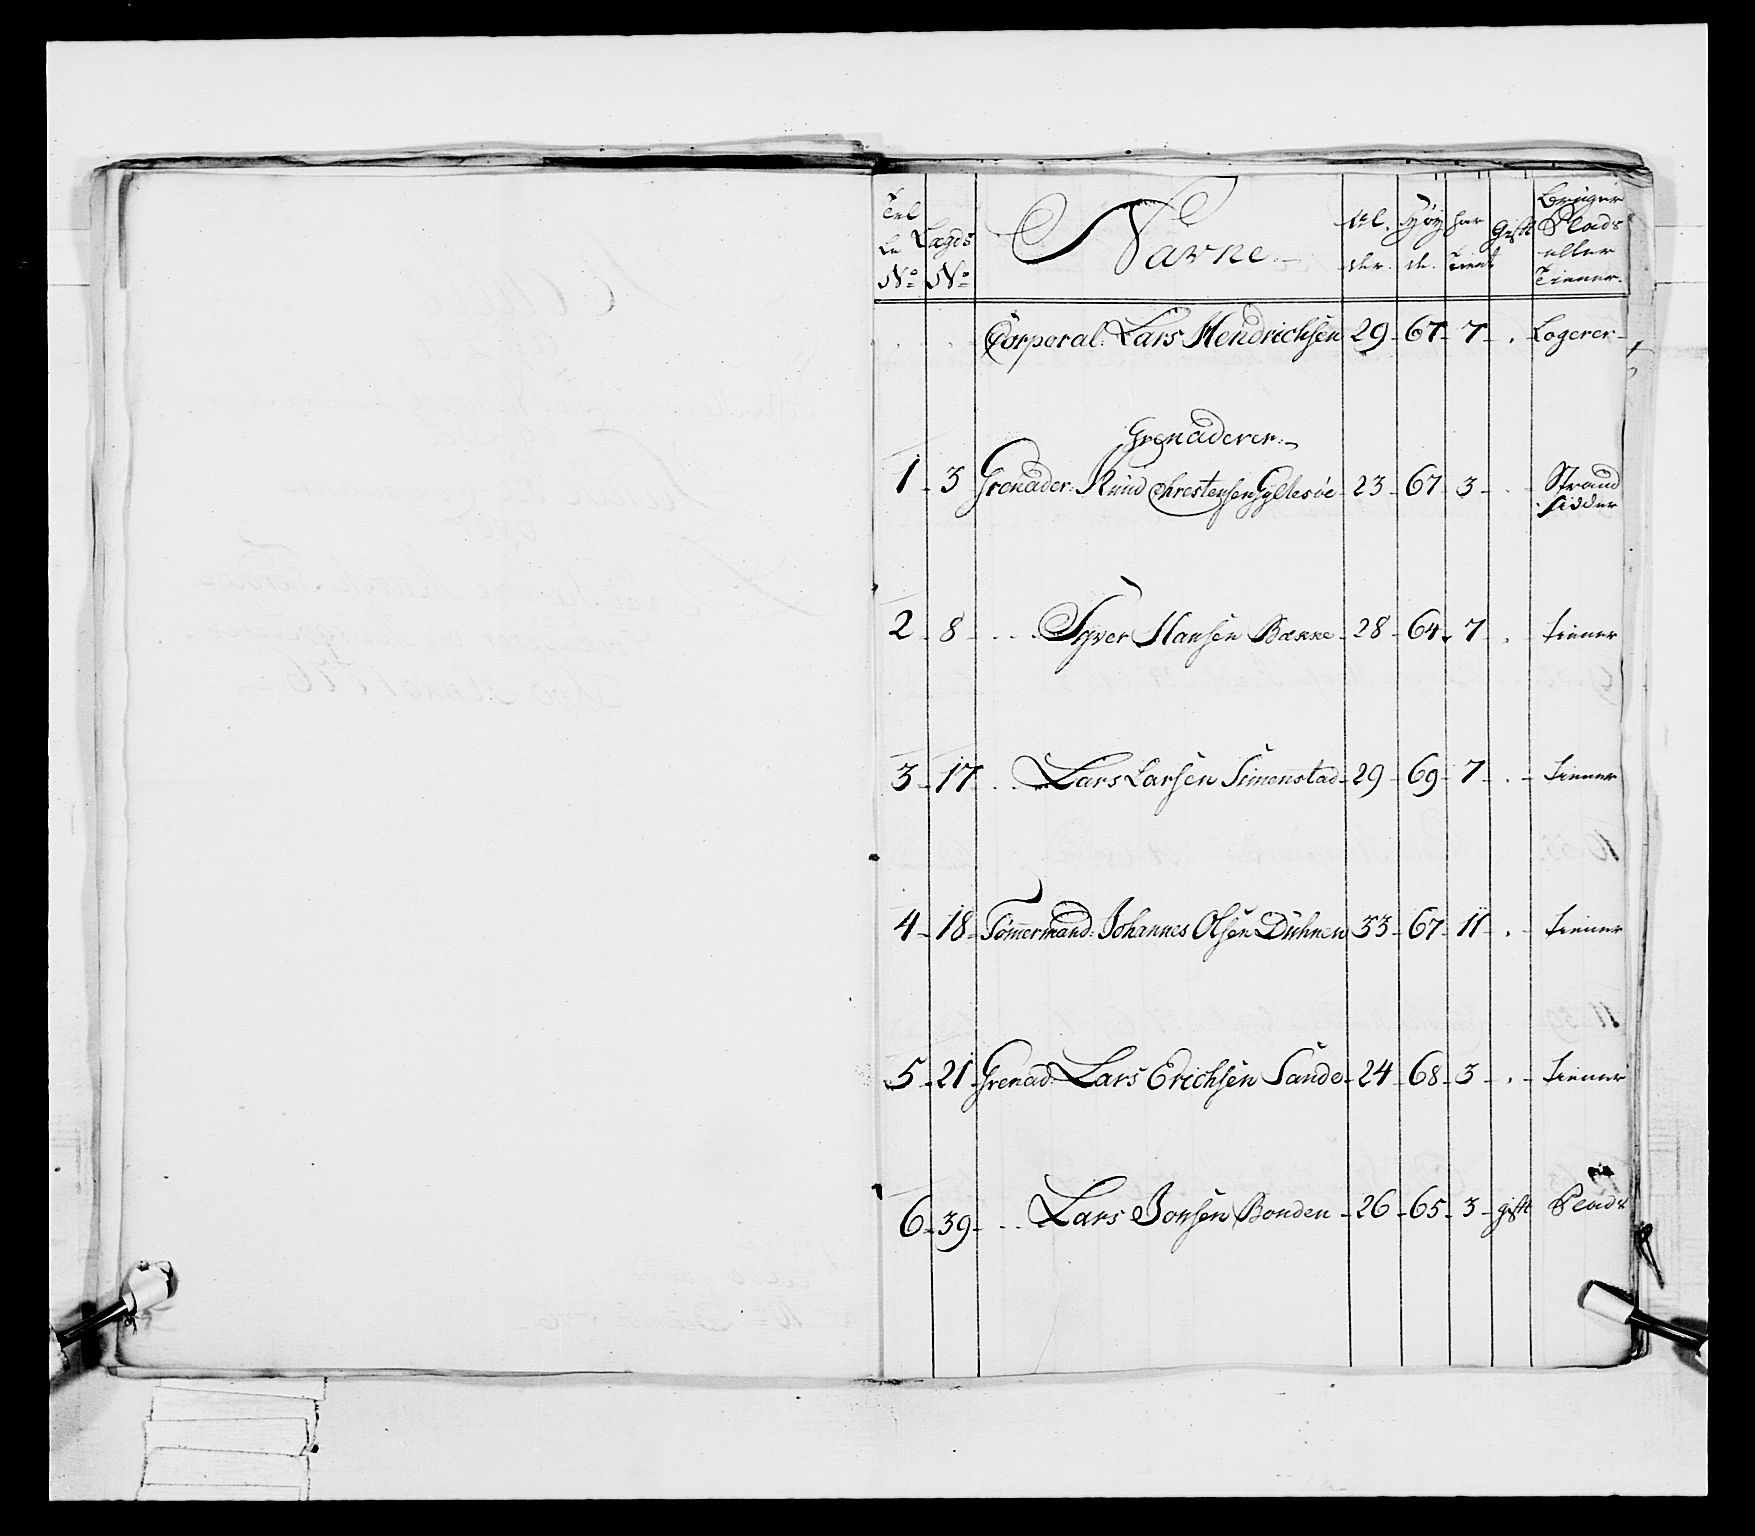 Tel Lægds Navne Al Høy har Gift Bruger
le Plads
der de Tient eller
No No Tienner.
Corporal: Lars Hendrichsen 29 67 7 . Logerer
Grenaderer:
1 3 Grenader: Knud Chrestensen Gyllesöe 23 67 3 . Strand
sidder
2 8 . . Syver Hansen Bække 28 64 7 . tienner
3 17 . . Lars Larsen Simenstad 29 69 7 . tienner
4 18 Tömermand: Johannes Olsen Duhnen 33 67 11 . tienner
5 21 Grenad: Lars Erichsen Sande 24 68 3 . tienner
6 39 . . Lars Jonsen Bonden 26 65 3 gift Plads